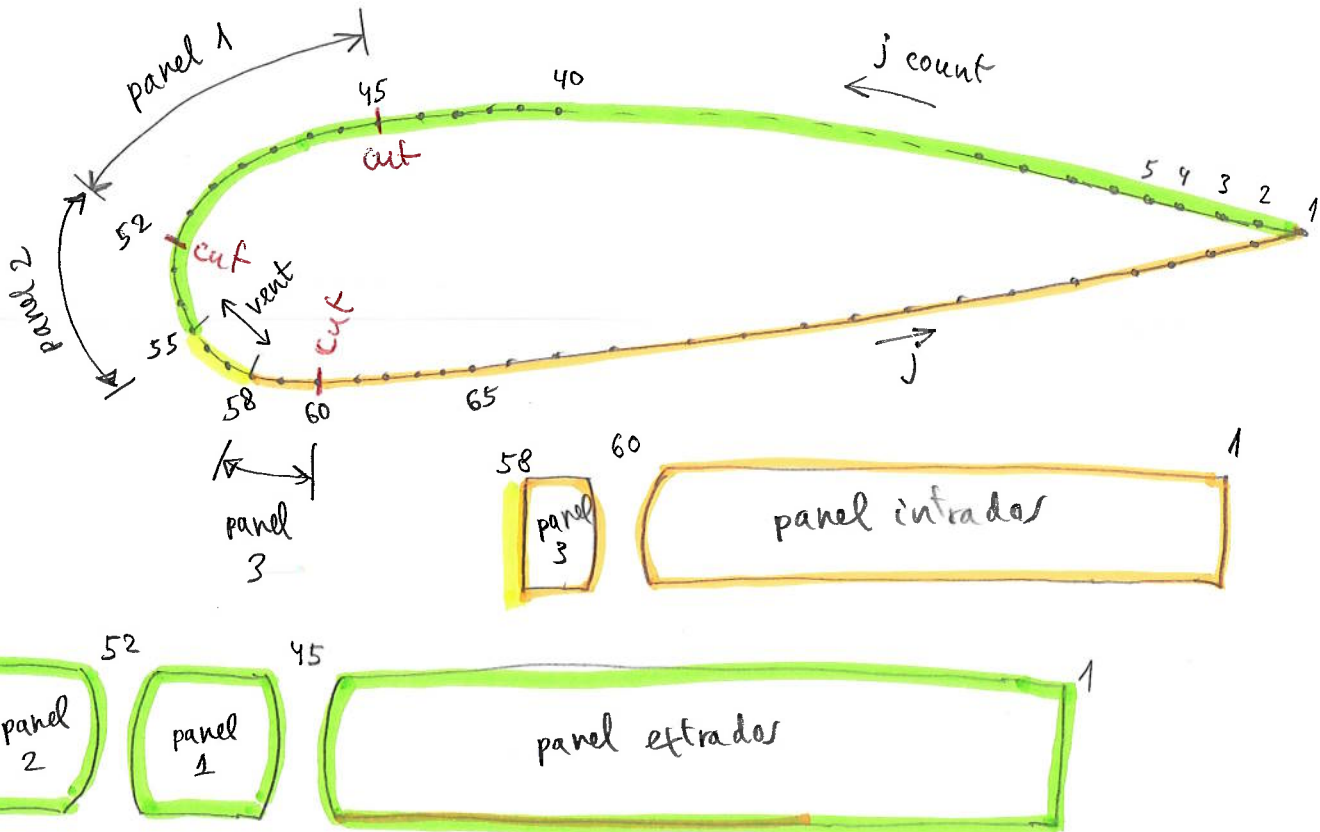 panel 1
j count
45
40
cut
5 4 3 2 1
52
cut
vent
cut
panel 2
55
58
60
65
j
panel
3
58
60
1
panel
3
panel intrados
52
45
1
panel
2
panel
1
panel extrados